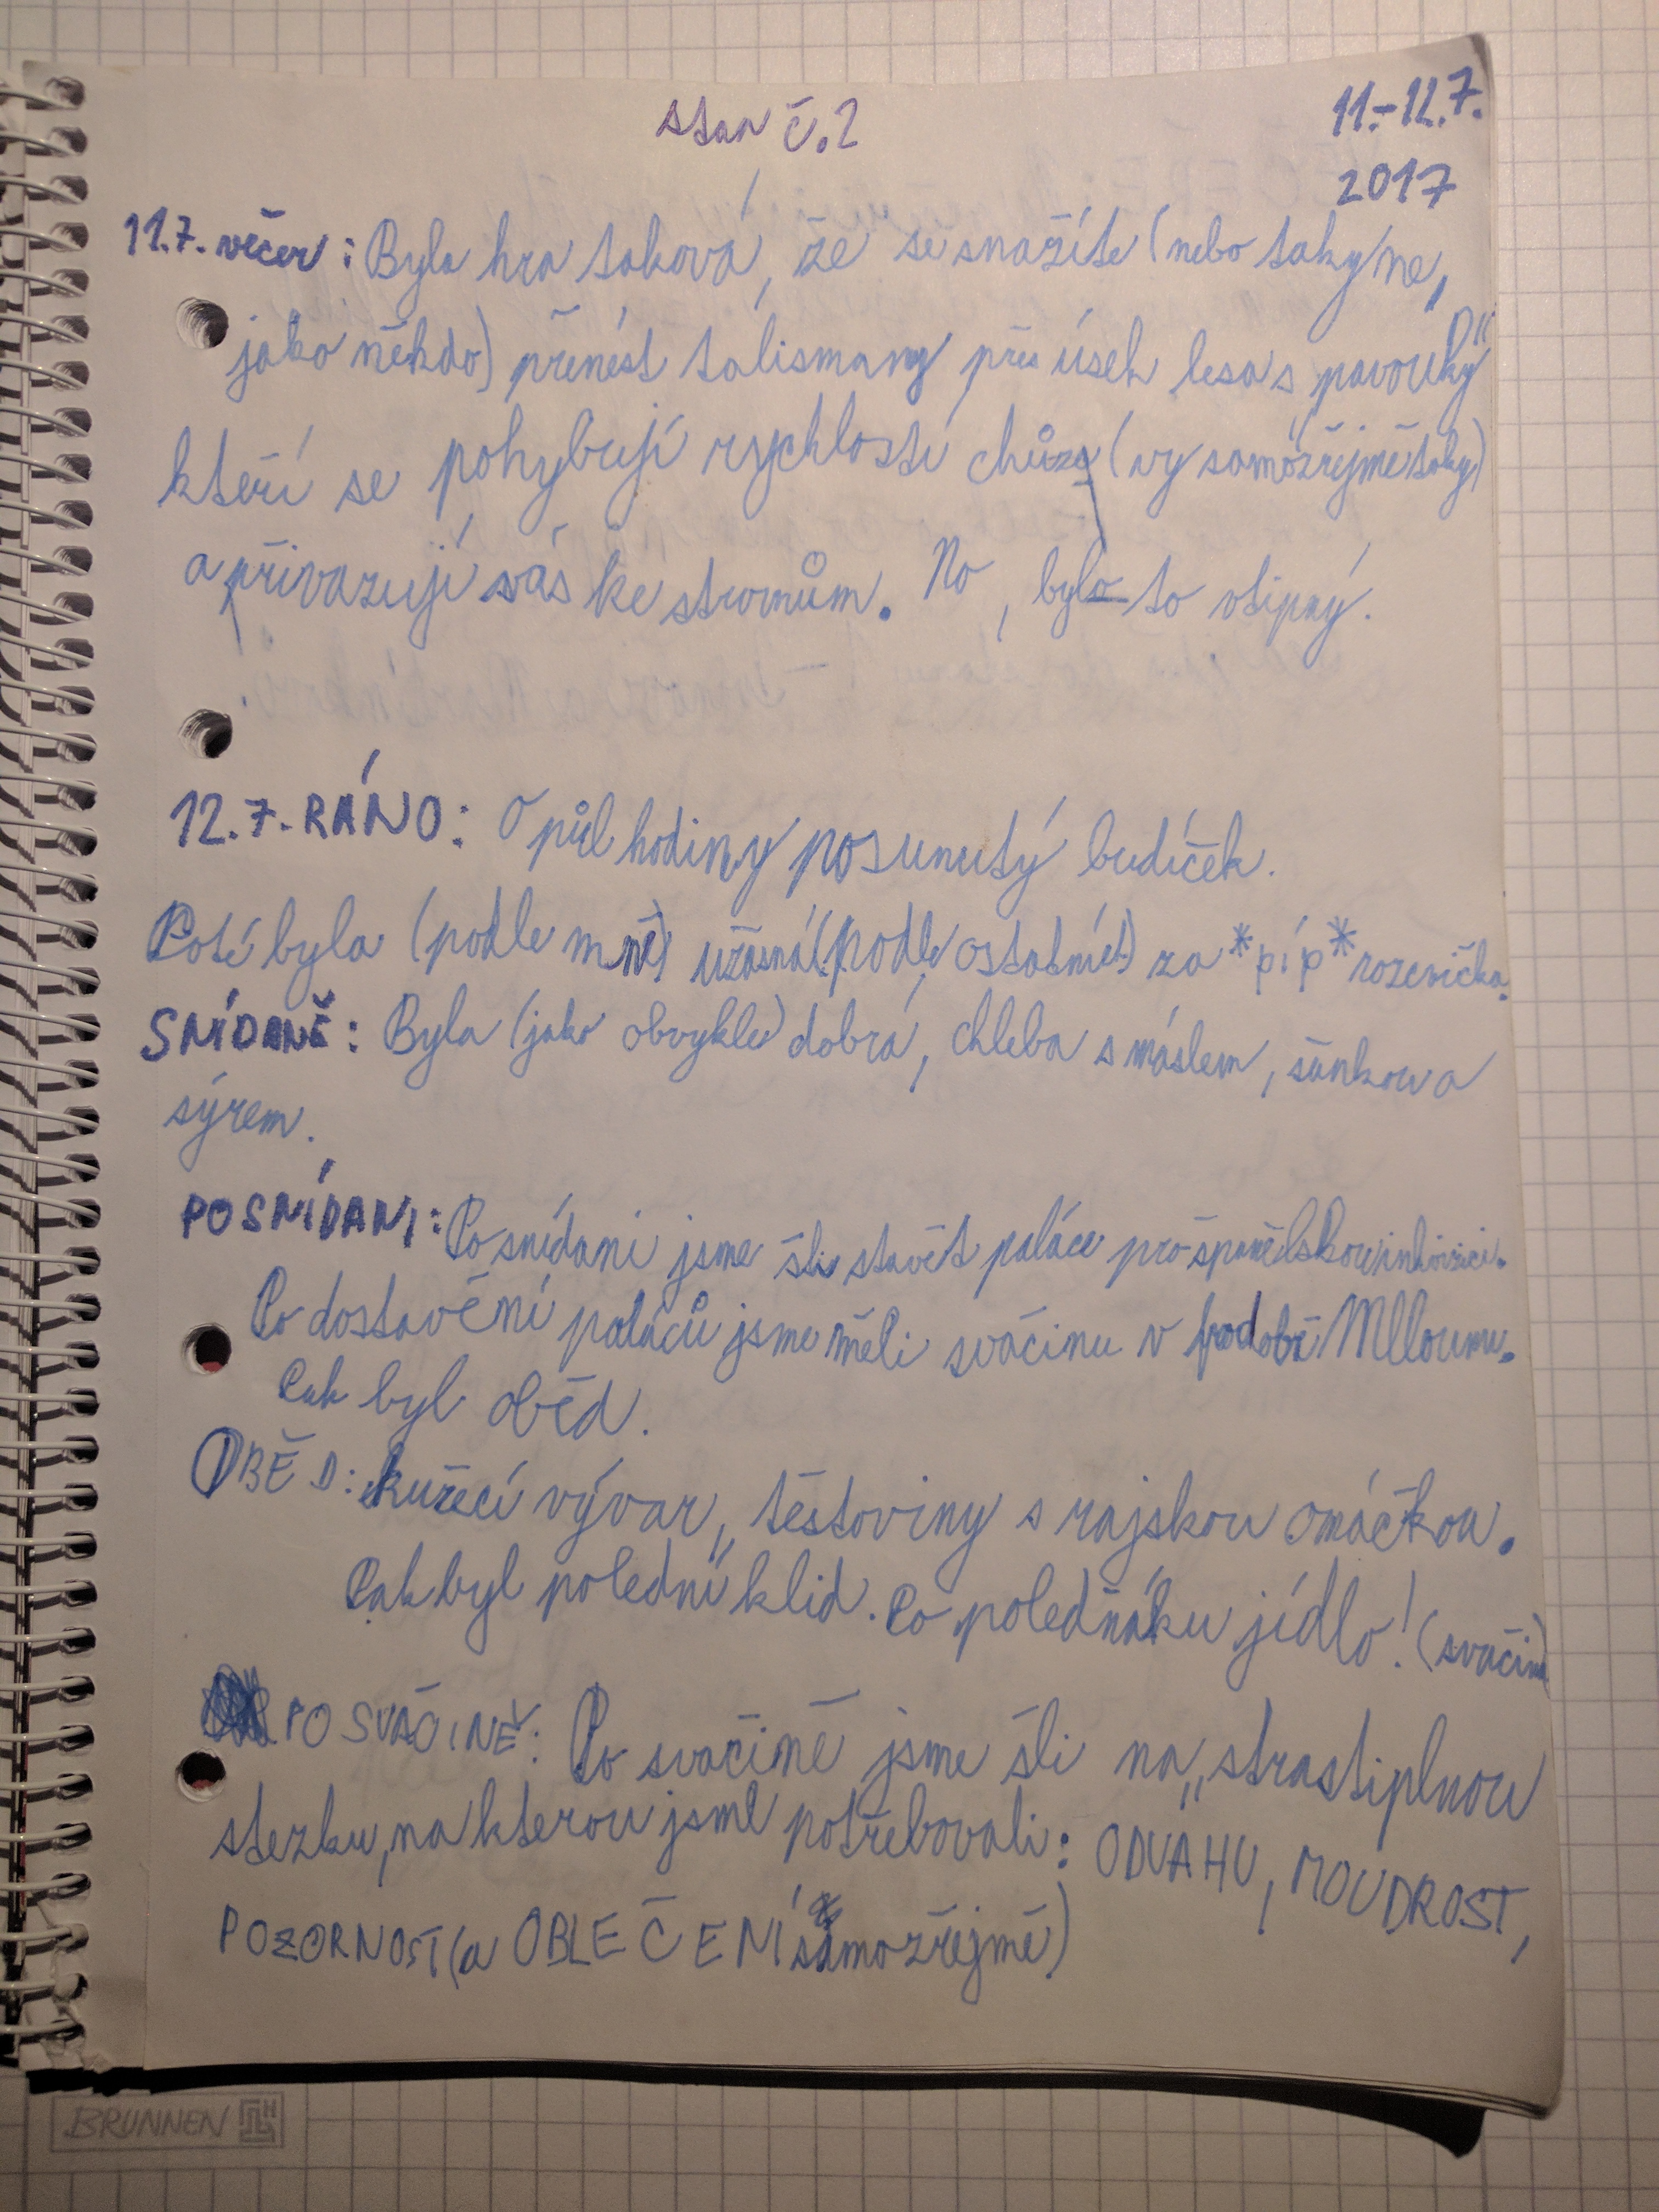 stan č.2
11.-12.7.
2017
11.7. večer: Byla hra taková, že se snažíte (nebo taky ne,
jako někdo) přenést talismany přes úsek lesa s pavouky
kteří se pohybují rychlostí chůze (vy samozřejmě taky)
a přivazují vás ke stromům. No, bylo to vtipný.
12.7. RÁNO: O půl hodiny posunutý budíček.
Poté byla (podle mně) úžasná (podle ostatních) za *píp* rozcvička.
SNÍDANĚ: Byla (jako obvykle) dobrá, chleba s máslem, šunkou a
sýrem.
PO SNÍDANI: Po snídani jsme šli stavět paláce pro španělskou inkvizici.
Po dostavění paláců jsme měli svačinu v podobě Mlloumu.
Pak byl oběd.
OBĚD: kuřecí vývar, těstoviny s rajskou omáčkou.
Pak byl polední klid. Po poledňáku jídlo! (svačina)
PO SVAČINĚ: Po svačině jsme šli na „strastiplnou
stezku, na kterou jsme potřebovali: ODVAHU, MOUDROST,
POZORNOST (a OBLEČENÍ samozřejmě)
BRUNNEN